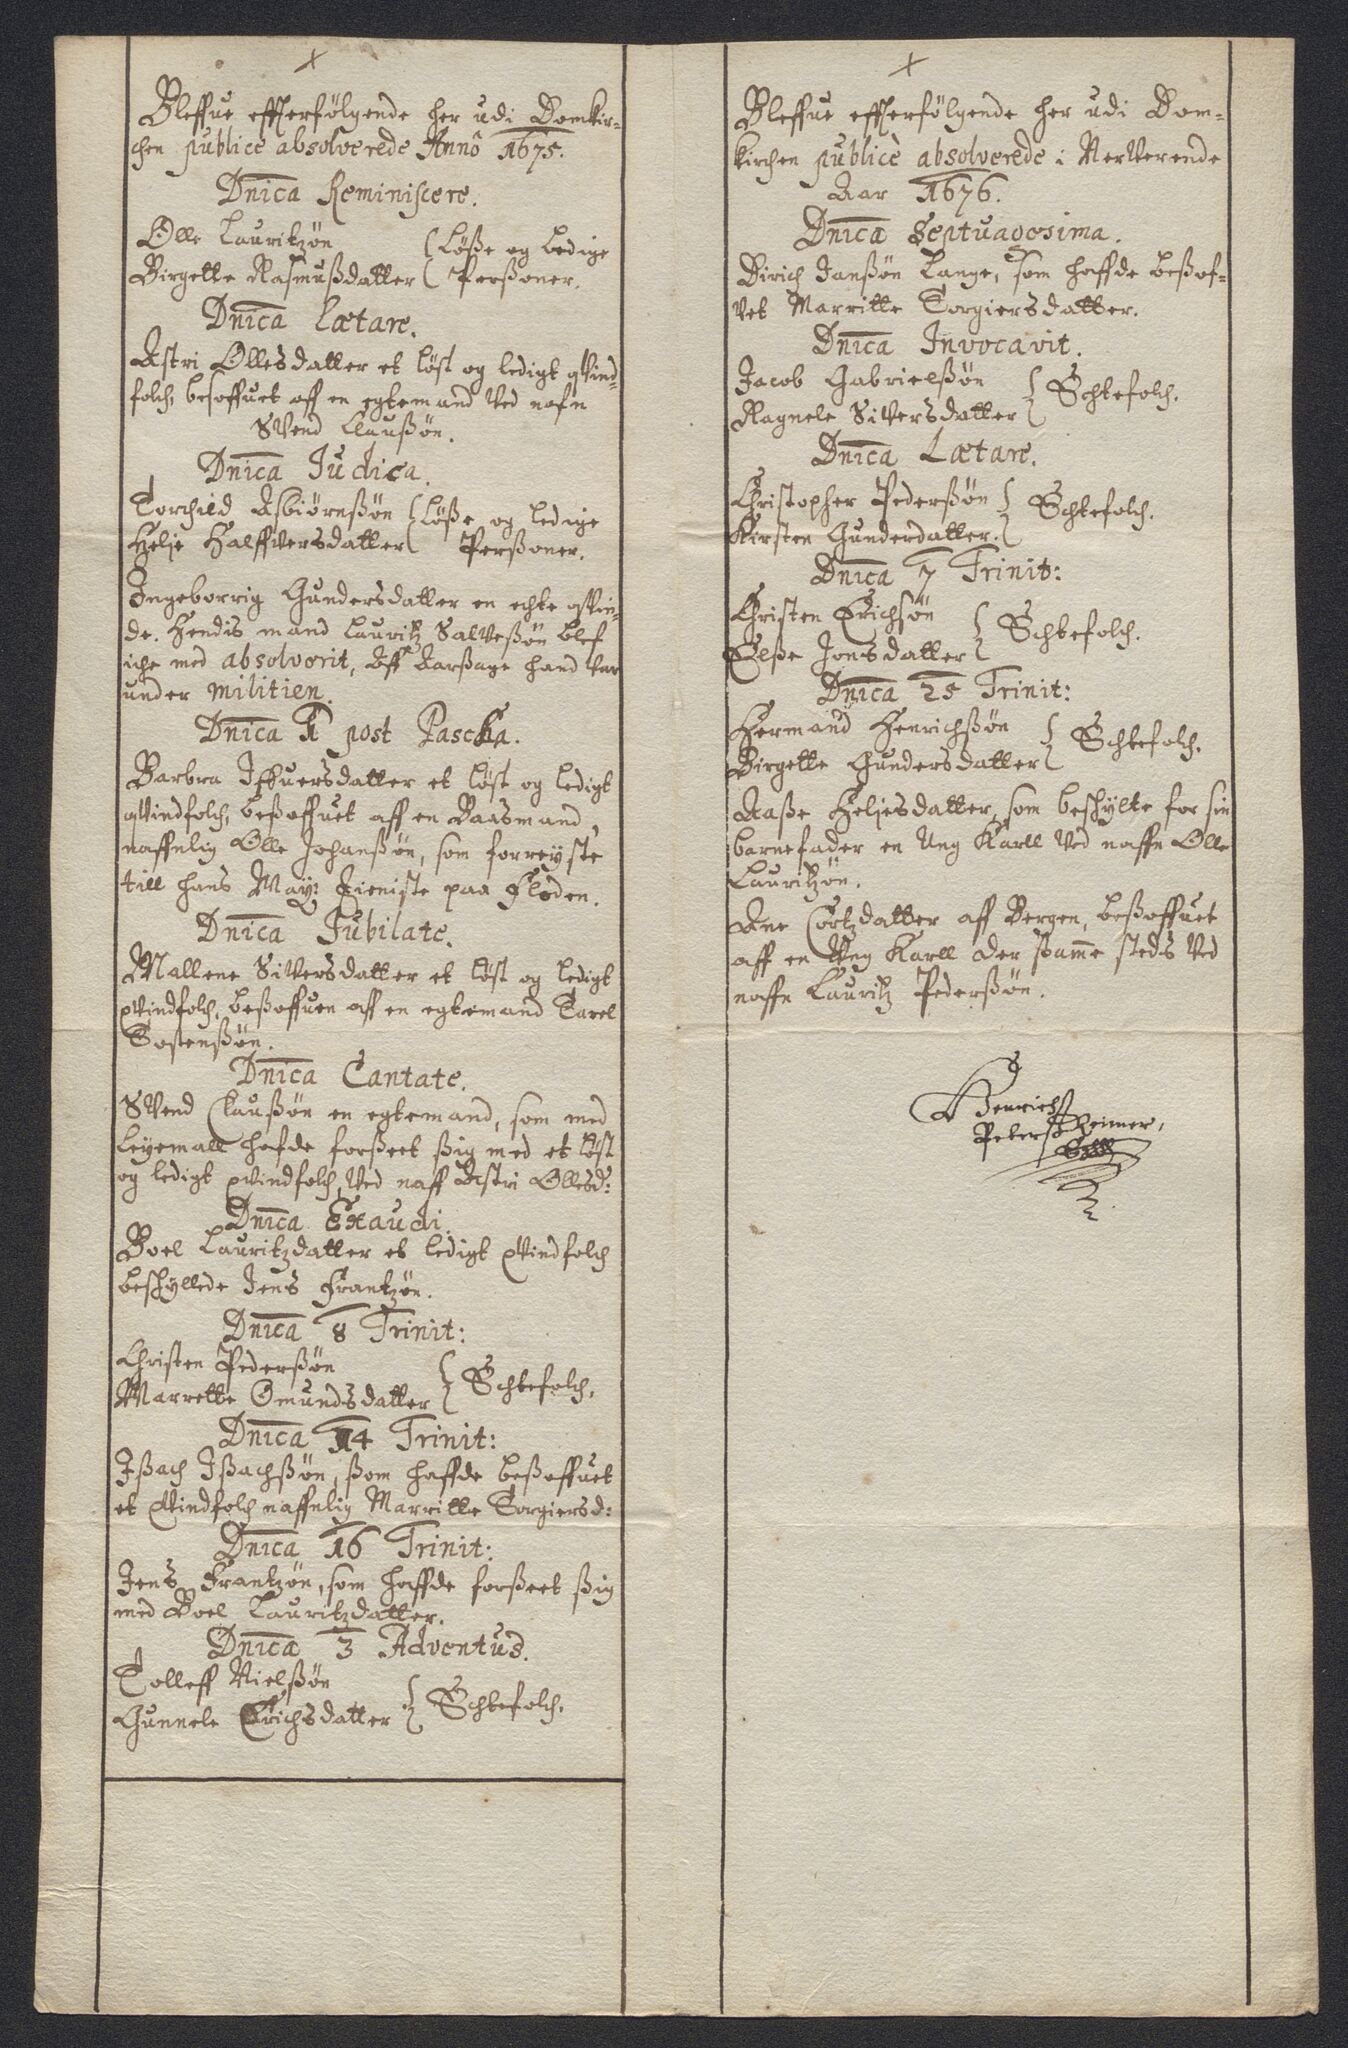 Bleffue effterfölgende her udi Domkir-
chen publicè absolverede Annô 1675.
Dnica Reminiscere.
Olle Lauritzøn
Birgette Rasmußdatter
Løße og ledige
Perßoner.
Dnica Lætare.
Astri Ollesdatter et løst og ledigt qvind-
folch, besoffuet aff en egtemand ved nafn
Svend Claußøn.
Dnica Judica.
Torchild Asbiörnßøn
Helje Halffversdatter
Løße og ledige
Perßoner.
Ingeborrig Gundersdatter en echte qvin-
de. Hendis mand Lauritz Salveßøn blef
iche med absolverit, Aff Aarßage hand var
under militien.
Dnica 1 post Pascha.
Barbra Iffuersdatter et løst og ledigt
qvindfolch, beßoffuet aff en Baasmand,
naffnlig Olle Johanßøn, som forreyste
till hans May: tieniste paa Floden.
Dnica Jubilate.
Mallene Siversdatter et løst og ledigt
qvindfolch, beßoffuen aff en egtemand Tarel
Tostenßøn.
Dnica Cantate.
Svend Claußøn en egtemand, som med
Leyemall hafde forßeet ßig med et løst
og ledigt qvindfolch, ved naff Astri Ollesd:
Dnica Exaudi.
Boel Lauritzdatter et ledigt qvindfolch
beskyllede Jens Frantzøn.
Dnica 8 Trinit:
Christen Pederßøn
Marrette Omundsdatter
Echtefolch.
Dnica 14 Trinit:
Ißach Ißachßøn, ßom haffde beßoffuet
et qvindfolch naffnlig Marritte Torgiersd:
Dnica 16 Trinit:
Jens Frantzøn, som haffde forßeet ßig
med Boel Lauritzdatter.
Dnica 3 Adventus.
Tolleff Nielßøn
Gunnele Erichsdatter
Echtefolch.
Bleffue effterfölgende her udi Dom-
kirchen publicè absolverede i Nerverende
Aar 1676.
Dnica Septuagesima.
Dirich Janßøn Lange, som haffde beßof-
vet Marritte Torgiersdatter.
Dnica Invocavit.
Jacob Gabrielßøn
Ragnele Siversdatter
Echtefolch.
Dnica Lætare.
Christopher Pederßøn
Kirsten Gunderdatter.
Echtefolch.
Dnica 7 Trinit:
Christen Erichsøn
Elße Jonsdatter
Echtefolch.
Dnica 25 Trinit:
Hermand Henrichßøn
Birgette Gundersdatter
Echtefolch.
Aaße Heljesdatter, som beskylte for sin
barnefader en Ung Karll ved naffn Olle
Lauritzøn.
Ane Cortzdatter aff Bergen, beßoffuet
aff en Ung Karll der ßamme steds ved
naffn Lauritz Pederßøn.
Henrich
Peterß